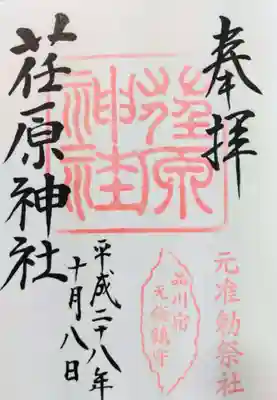 奉拝
元准勅祭社
荏原
神社
品川宿
荏原神社
平成二十八年
十月八日